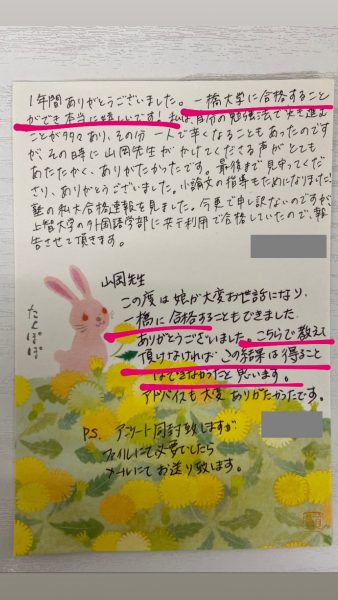 1年間ありがとうございました。一橋大学に合格すること
ができ本当に嬉しいです！私は、自分の勉強法で突き進む
ことが多々あり、その分一人で辛くなることもあったのです
が、その時に山岡先生がかけてくださる声がとても
あたたかく、ありがたかったです。最後まで見守ってくだ
さり、ありがとうございました。小論文の指導もためになりました。
塾の私大合格速報を見ました。今更で申し訳ないのですが、
上智大学の外国語学部に共テ利用で合格していたので、報
告させて頂きます。
山岡先生
この度は娘が大変お世話になり、
一橋に合格することもできました。
ありがとうございました。こちらで教えて
頂けなければこの結果は得ること
はできなかったと思います。
アドバイスも大変ありがたかったです。
P.S. アンケート同封致しますが
ファイルにて必要でしたら
メールにてお送り致します。
たんぽぽ